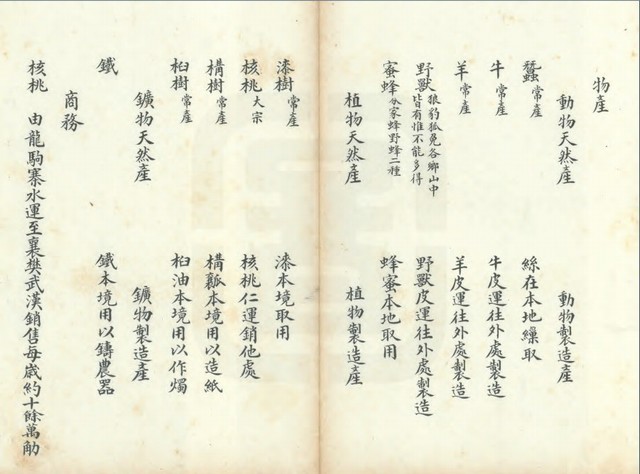 物産
動物天然産　動物製造産
蠶常産　絲在本地繅取
牛常産　牛皮運往外處製造
羊常産　羊皮運往外處製造
野獸狼豹狐兔各鄉山中皆有惟不能多得　野獸皮運往外處製造
蜜蜂分家蜂野蜂二種　蜂蜜本地取用
植物天然産　植物製造産
漆樹常産　漆本境取用
核桃大宗　核桃仁運銷他處
構樹常産　構瓤本境用以造紙
桕樹常産　桕油本境用以作燭
鑛物天然産　鑛物製造産
鐵　鐵本境用以鑄農器
商務
核桃　由龍駒寨水運至襄樊武漢銷售每歲約十餘萬觔